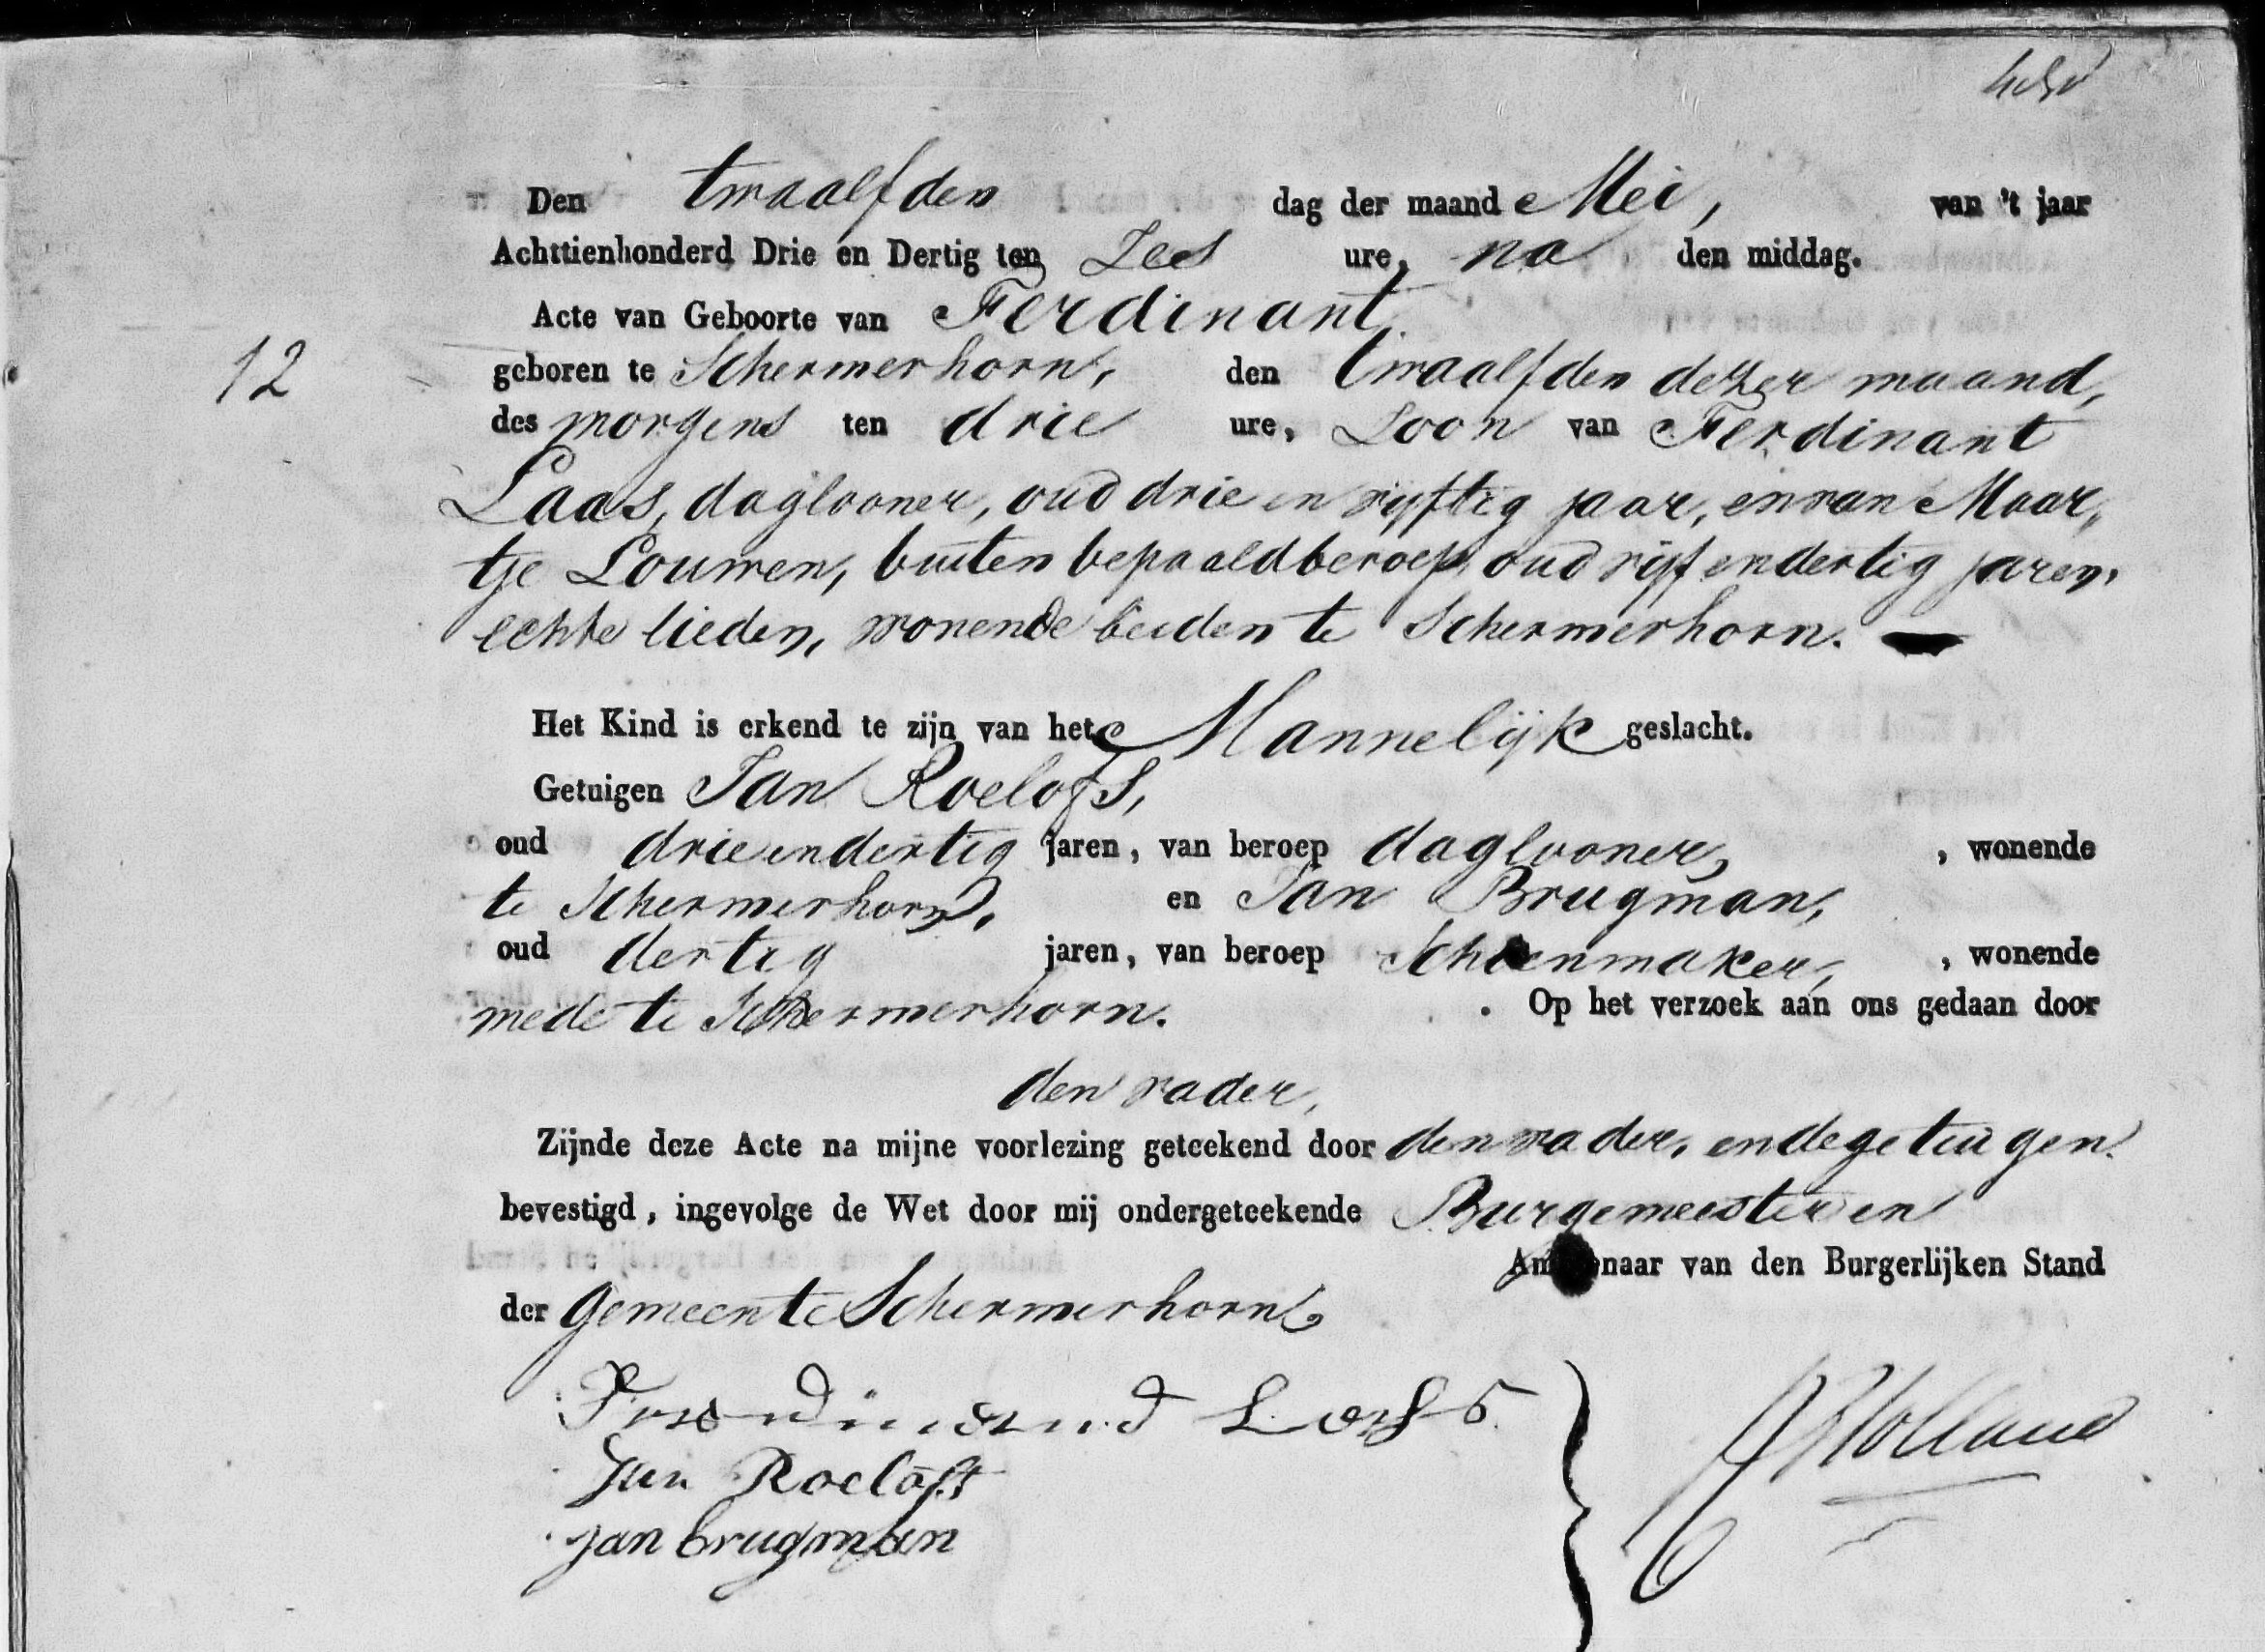 Den twaalfden dag der maand Mei, van 't jaar
Achttienhonderd Drie en Dertig ten Zes ure, na den middag.
Acte van Geboorte van Ferdinant,
12
geboren te Schermerhorn, den twaalfden dezer maand,
des morgens ten drie ure, Zoon van Ferdinant
Laas, daglooner, oud drie en vijftig jaar, en van Maar„
tje Louwen, buiten bepaald beroep, oud vijf en dertig jaren,
echte lieden, wonende beiden te Schermerhorn.
Het Kind is erkend te zijn van het Mannelijk geslacht.
Getuigen Jan Roelofs,
oud drie en dertig jaren, van beroep daglooner, , wonende
te Schermerhorn, en Jan Brugman,
oud dertig jaren, van beroep Schoenmaker, , wonende
mede te Schermerhorn. . Op het verzoek aan ons gedaan door
den vader,
Zijnde deze Acte na mijne voorlezing geteekend door den vader, en de getuigen.
bevestigd, ingevolge de Wet door mij ondergeteekende Burgemeester en
Ambtenaar van den Burgerlijken Stand
der gemeente Schermerhorn
Jan Roelofs
Jan brugman
Holland